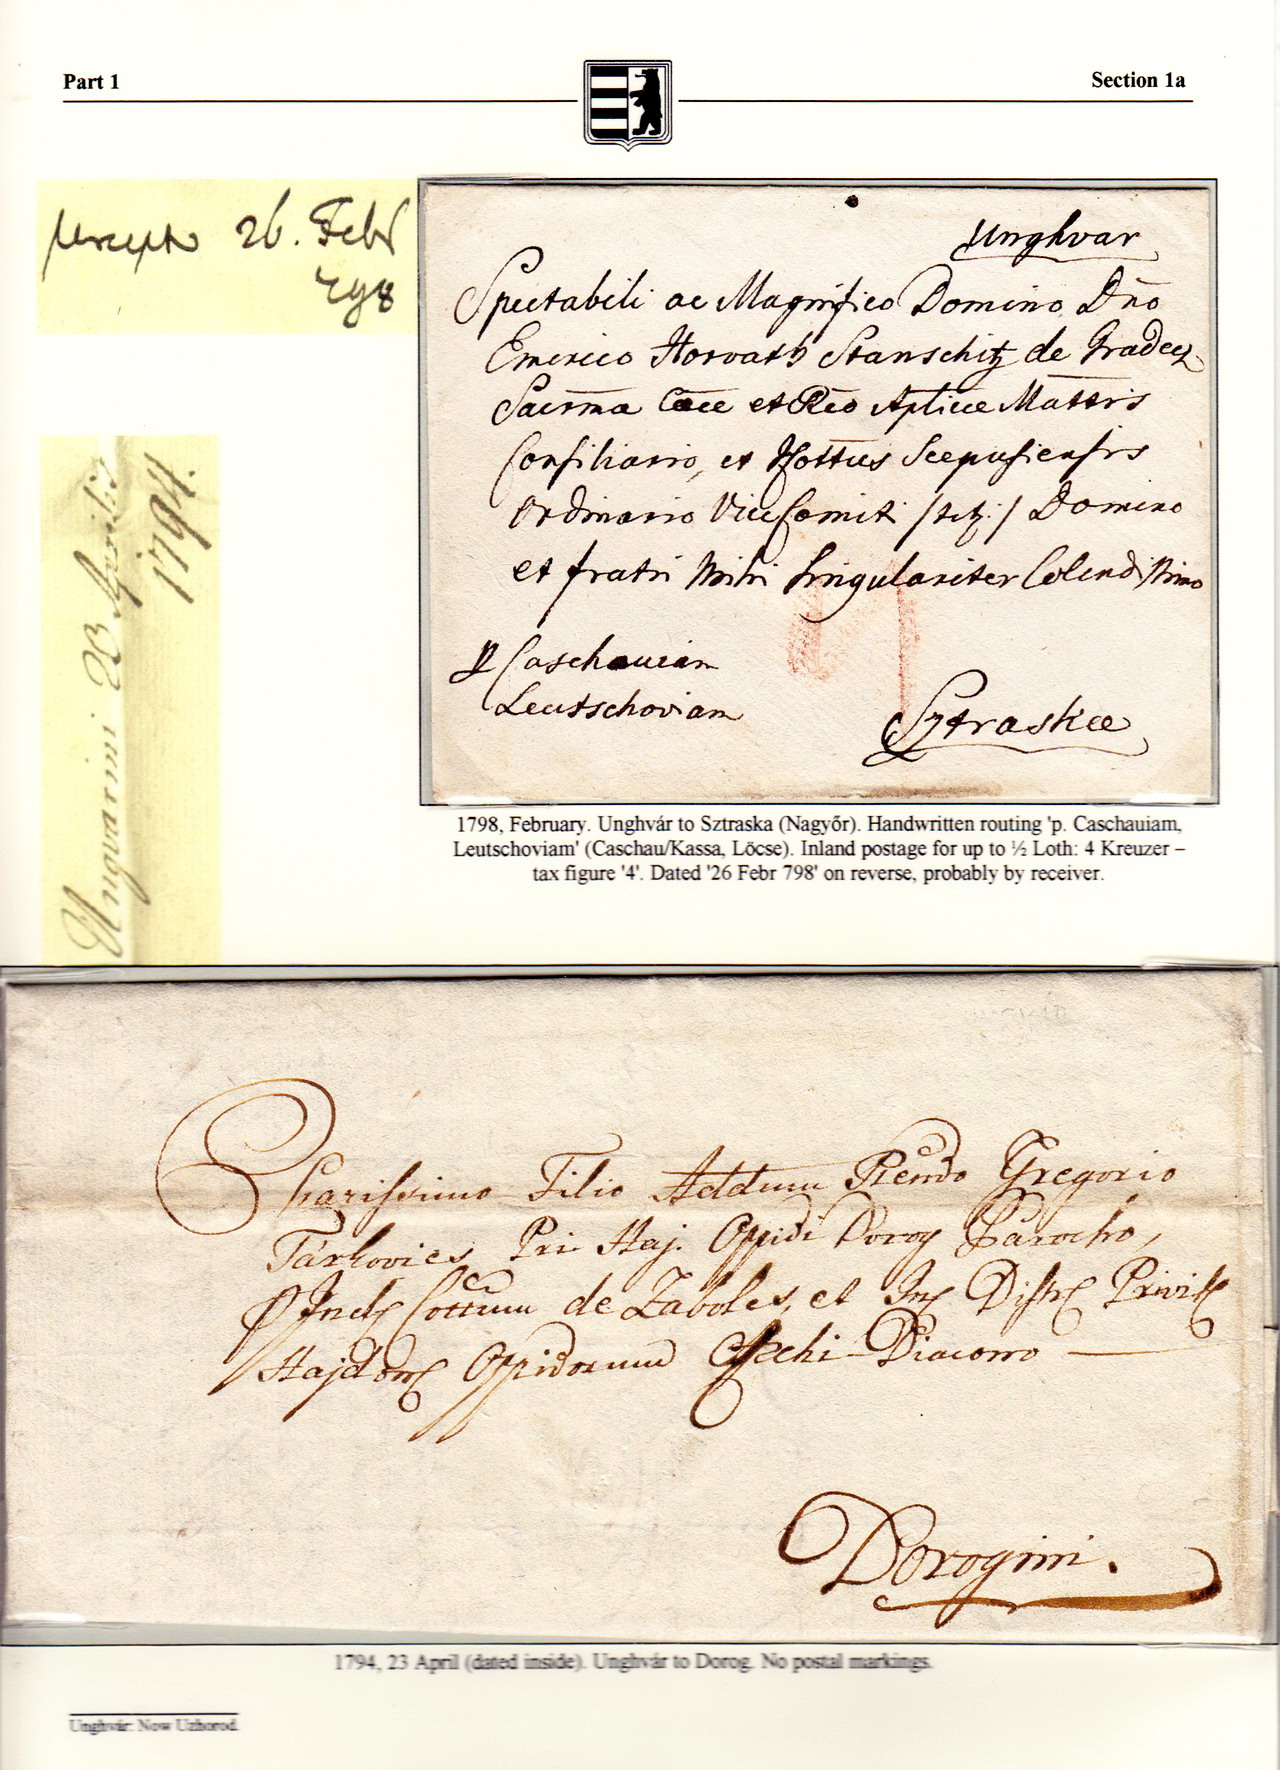 Part 1
Section 1a
26. Febr
798
Unghvar
Spectabili ac Magnifico Domino Dno
Emerico Horvath Stanschitz de Gradecz
Sacrma Caee et Reo Aplicae Mattis
Consiliario, et Scepusiensis
Ordinario ViceComiti /titz:/ Domino
et fratri Mihi Singulariter Colendissimo
p Caschauiam
Leutschoviam
Sztraskae
Ungvarini 23 Aprilis
1794.
1798, February. Unghvár to Sztraska (Nagyőr). Handwritten routing 'p. Caschauiam,
Leutschoviam' (Caschau/Kassa, Löcse). Inland postage for up to ½ Loth: 4 Kreuzer –
tax figure '4'. Dated '26 Febr 798' on reverse, probably by receiver.
Charissimo Filio Addum Rendo Gregorio
Tarkovics Pri Haj. Oppidi Dorog Parocho,
Cottum de Zaboles, et
Oppidorum Diacono
Dorogini.
1794, 23 April (dated inside). Unghvár to Dorog. No postal markings.
Unghvár: Now Uzhorod.